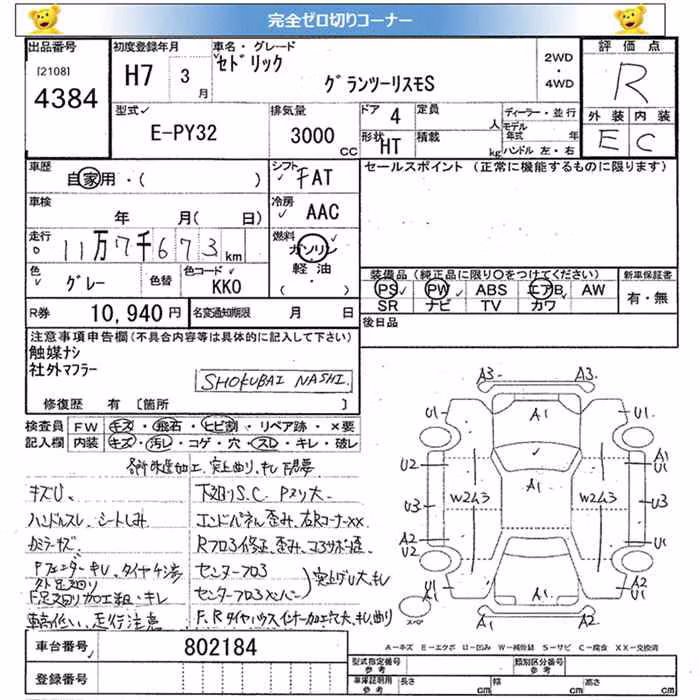 完全ゼロ切りコーナー
出品番号 初度登録年月 車名・グレード 評価点
[2108]
4384
H7 3月
セドリック
グランツーリスモS
2WD
・
4WD
R
型式 排気量 ドア 4 定員 人 ディーラー・並行
E-PY32 3000 CC
形状 HT 積載 kg
モデル年式 年
ハンドル 左・右
外装 内装
E C
車歴
自家用・( )
シフト FAT
セールスポイント (正常に機能するものに限ります)
車検
年 月( 日)
冷房 AAC
走行
11万7千673km
燃料
ガソリン
軽油
( )
色 グレー 色替 色コード KK0
装備品(純正品に限り○をつけてください) 新車保証書
PS PW ABS エアB AW 有・無
SR ナビ TV カワ
R券 10,940円 名変通知期限 月 日
後日品
注意事項申告欄(不具合内容等は具体的に記入して下さい)
触媒ナシ
社外マフラー
SHOKUBAI NASHI.
修復歴 有 [箇所 ]
検査員 FW キズ・飛石・ヒビ割・リペア跡・×要
記入欄 内装 キズ・汚レ・コゲ・穴・スレ・キレ・破レ
キズU、
ハンドルスレ、シートしみ
下廻りS.C Pメリ大
エンドパネル歪み、右Rコーナーxx
Rフロア修正、歪み
センターフロア
センターフロアメンバー
F、Rタイヤハウスインナー加工穴大
走行注意
A3 A3
U1 A1 U1
U2 A1 A1 U1
U3 W2 W2 U3
A2 U2 U1
U1 A1 A2 U1
A2 A2
スペア
A－キズ E－エクボ U－凹み W－補修跡 S－サビ C－腐食 XX－交換済
車台番号 802184
登録番号
型式指定番号 参考 類別区分番号 参考
車庫証明用 参考 長さ cm 幅 cm 高さ cm